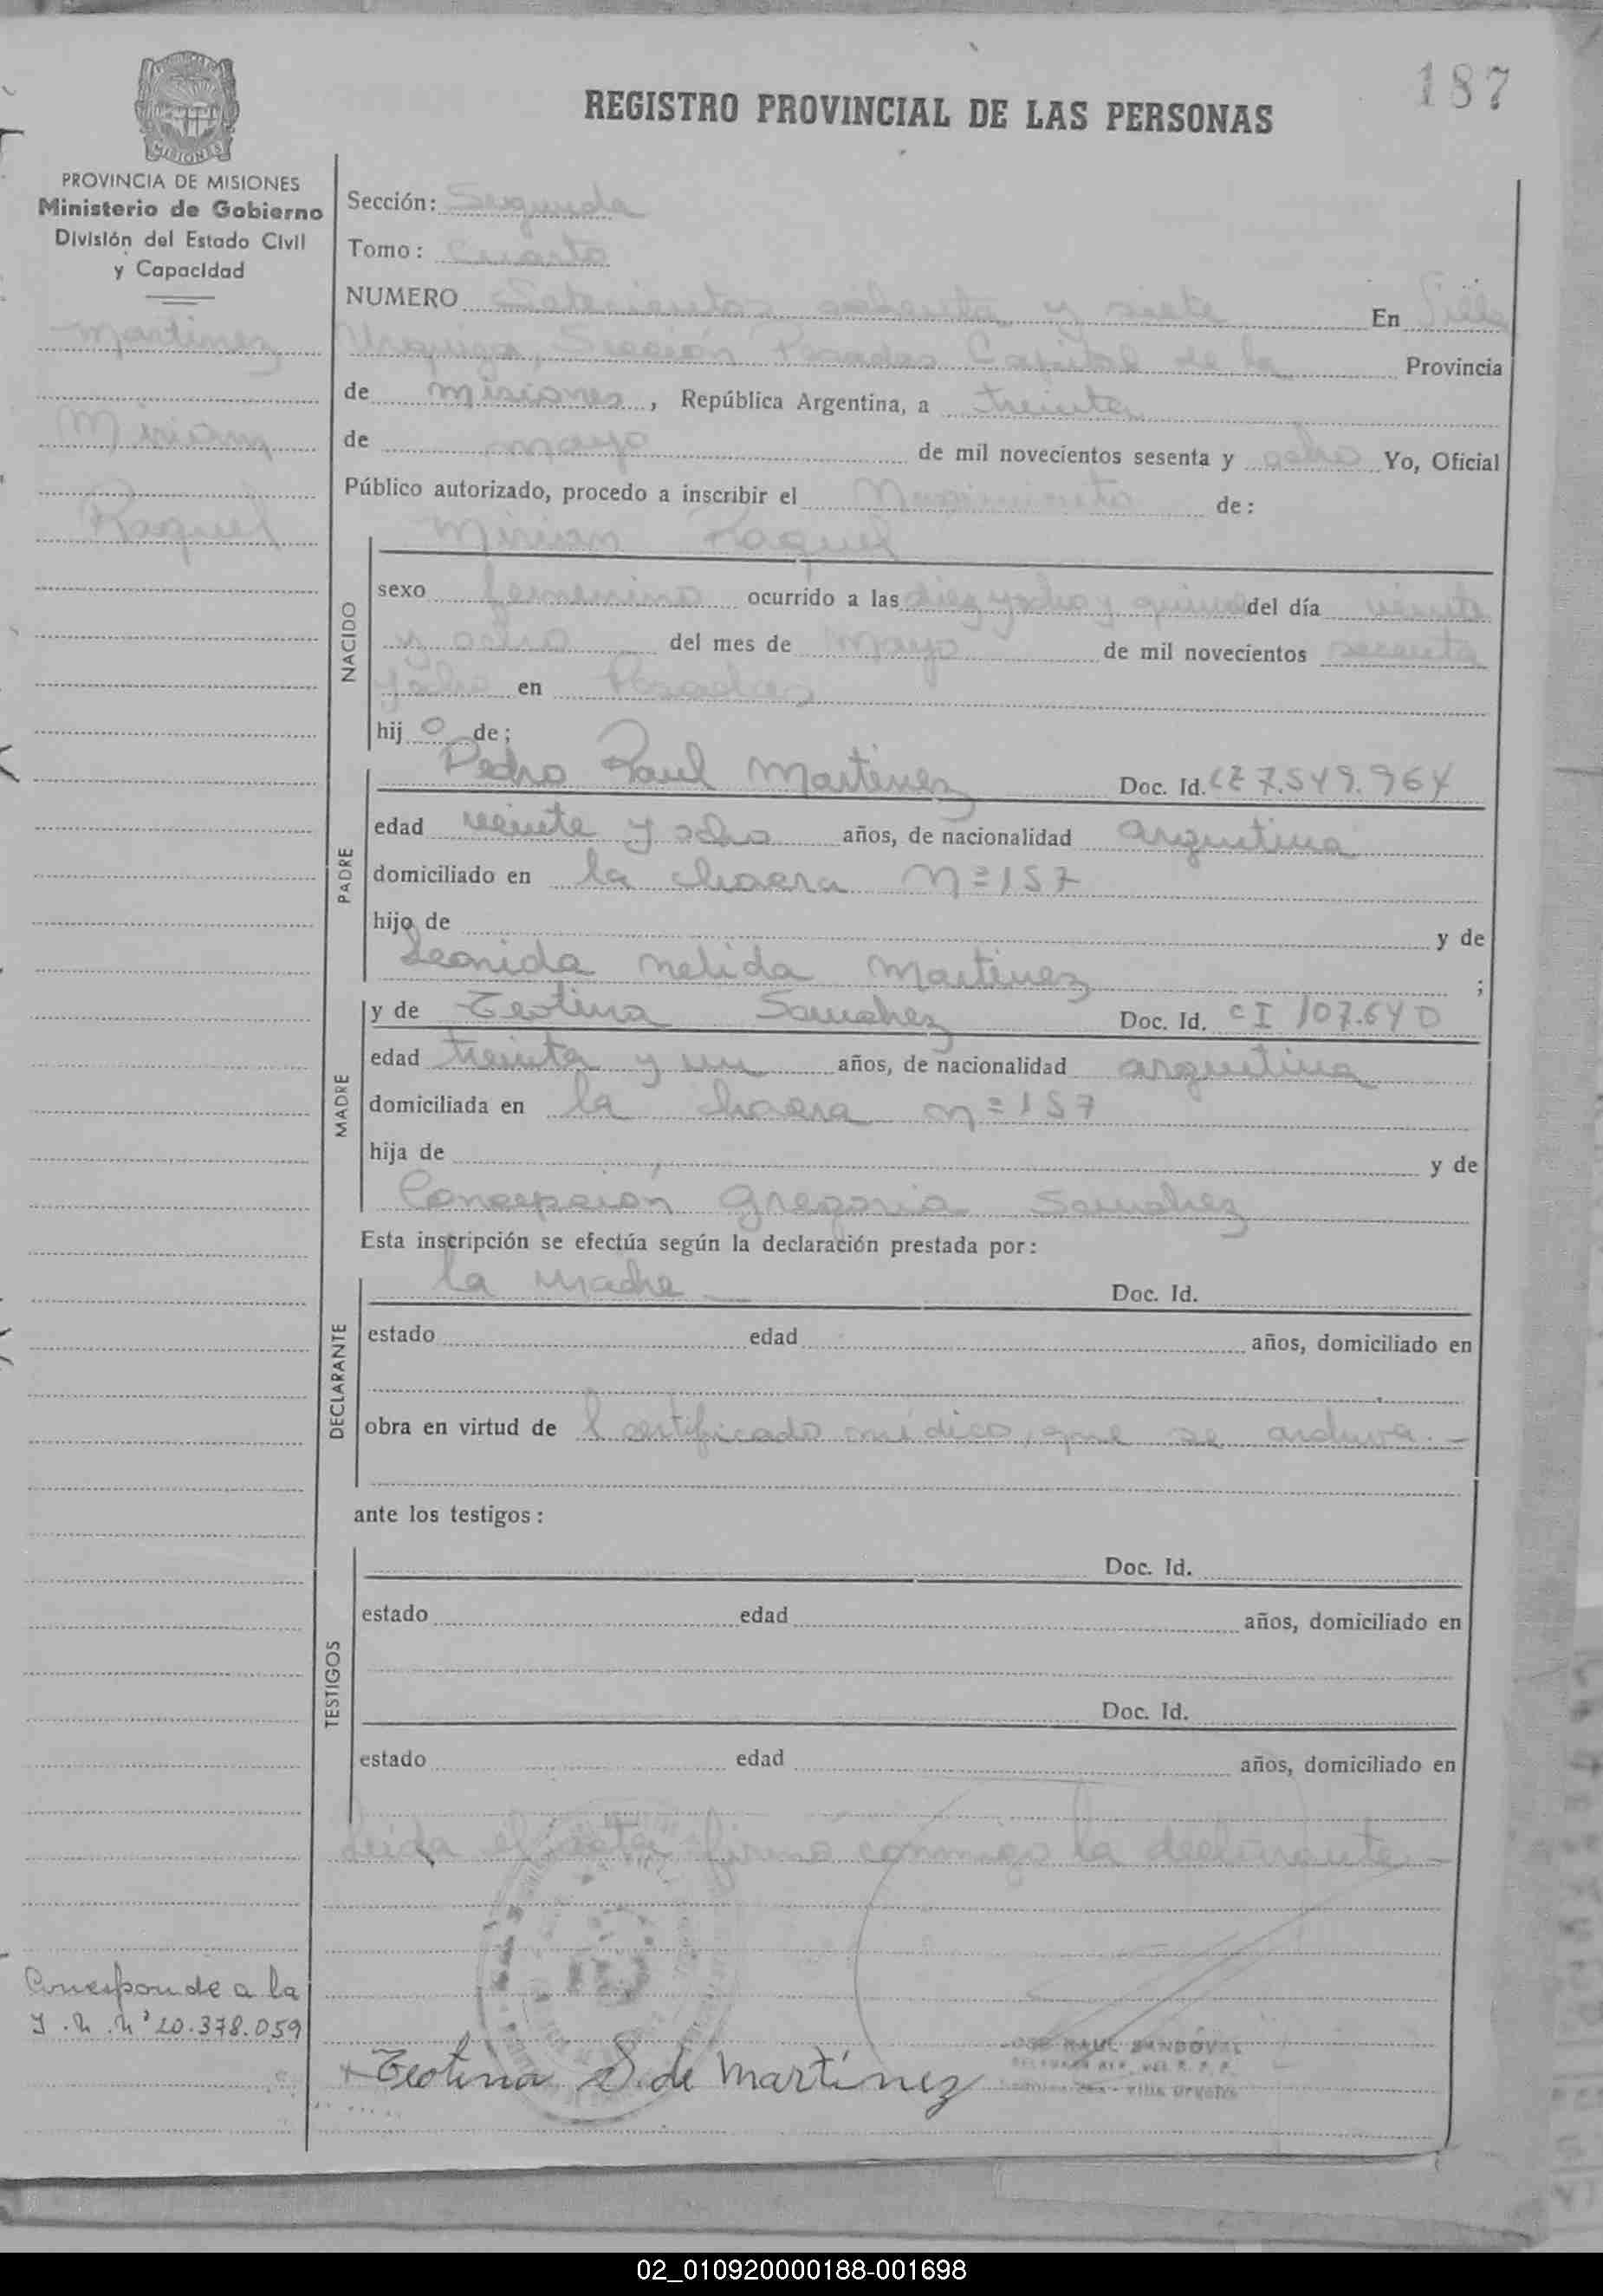 187
REGISTRO PROVINCIAL DE LAS PERSONAS
MISIONES
PROVINCIA DE MISIONES
Ministerio de Gobierno
División del Estado Civil
y Capacidad
Martinez
Miriam
Raquel
Sección: Segunda
Tomo: Cuarto
NUMERO Setecientos ochenta y siete En Villa
Urquiza, Sección Posadas Capital de la Provincia
de Misiones, República Argentina, a treinta
de mayo de mil novecientos sesenta y ocho Yo, Oficial
Público autorizado, procedo a inscribir el Nacimiento de:
Miriam Raquel
NACIDO
sexo femenino ocurrido a las diez y ocho y quince del día veinte
y ocho del mes de Mayo de mil novecientos sesenta
y ocho en Posadas
hij o de;
PADRE
Pedro Raul Martinez Doc. Id. CI 7.549.964
edad veinte y ocho años, de nacionalidad argentina
domiciliado en la chacra Nº 157
hijo de y de
Leonida Nelida Martinez ;
MADRE
y de Teotina Sanchez Doc. Id. CI 107.640
edad treinta y un años, de nacionalidad argentina
domiciliada en la chacra nº 157
hija de y de
Concepción Gregoria Sanchez
Esta inscripción se efectúa según la declaración prestada por:
DECLARANTE
la Madre Doc. Id.
estado edad años, domiciliado en
obra en virtud de l certificado médico, que se archiva.-
ante los testigos:
TESTIGOS
Doc. Id.
estado edad años, domiciliado en
Doc. Id.
estado edad años, domiciliado en
Leida el acta firma conmigo la declarante.-
Corresponde a la
I.N.Nº 20.378.059
Teotina S. de Martínez
RAUL SANDOVAL
02_010920000188-001698